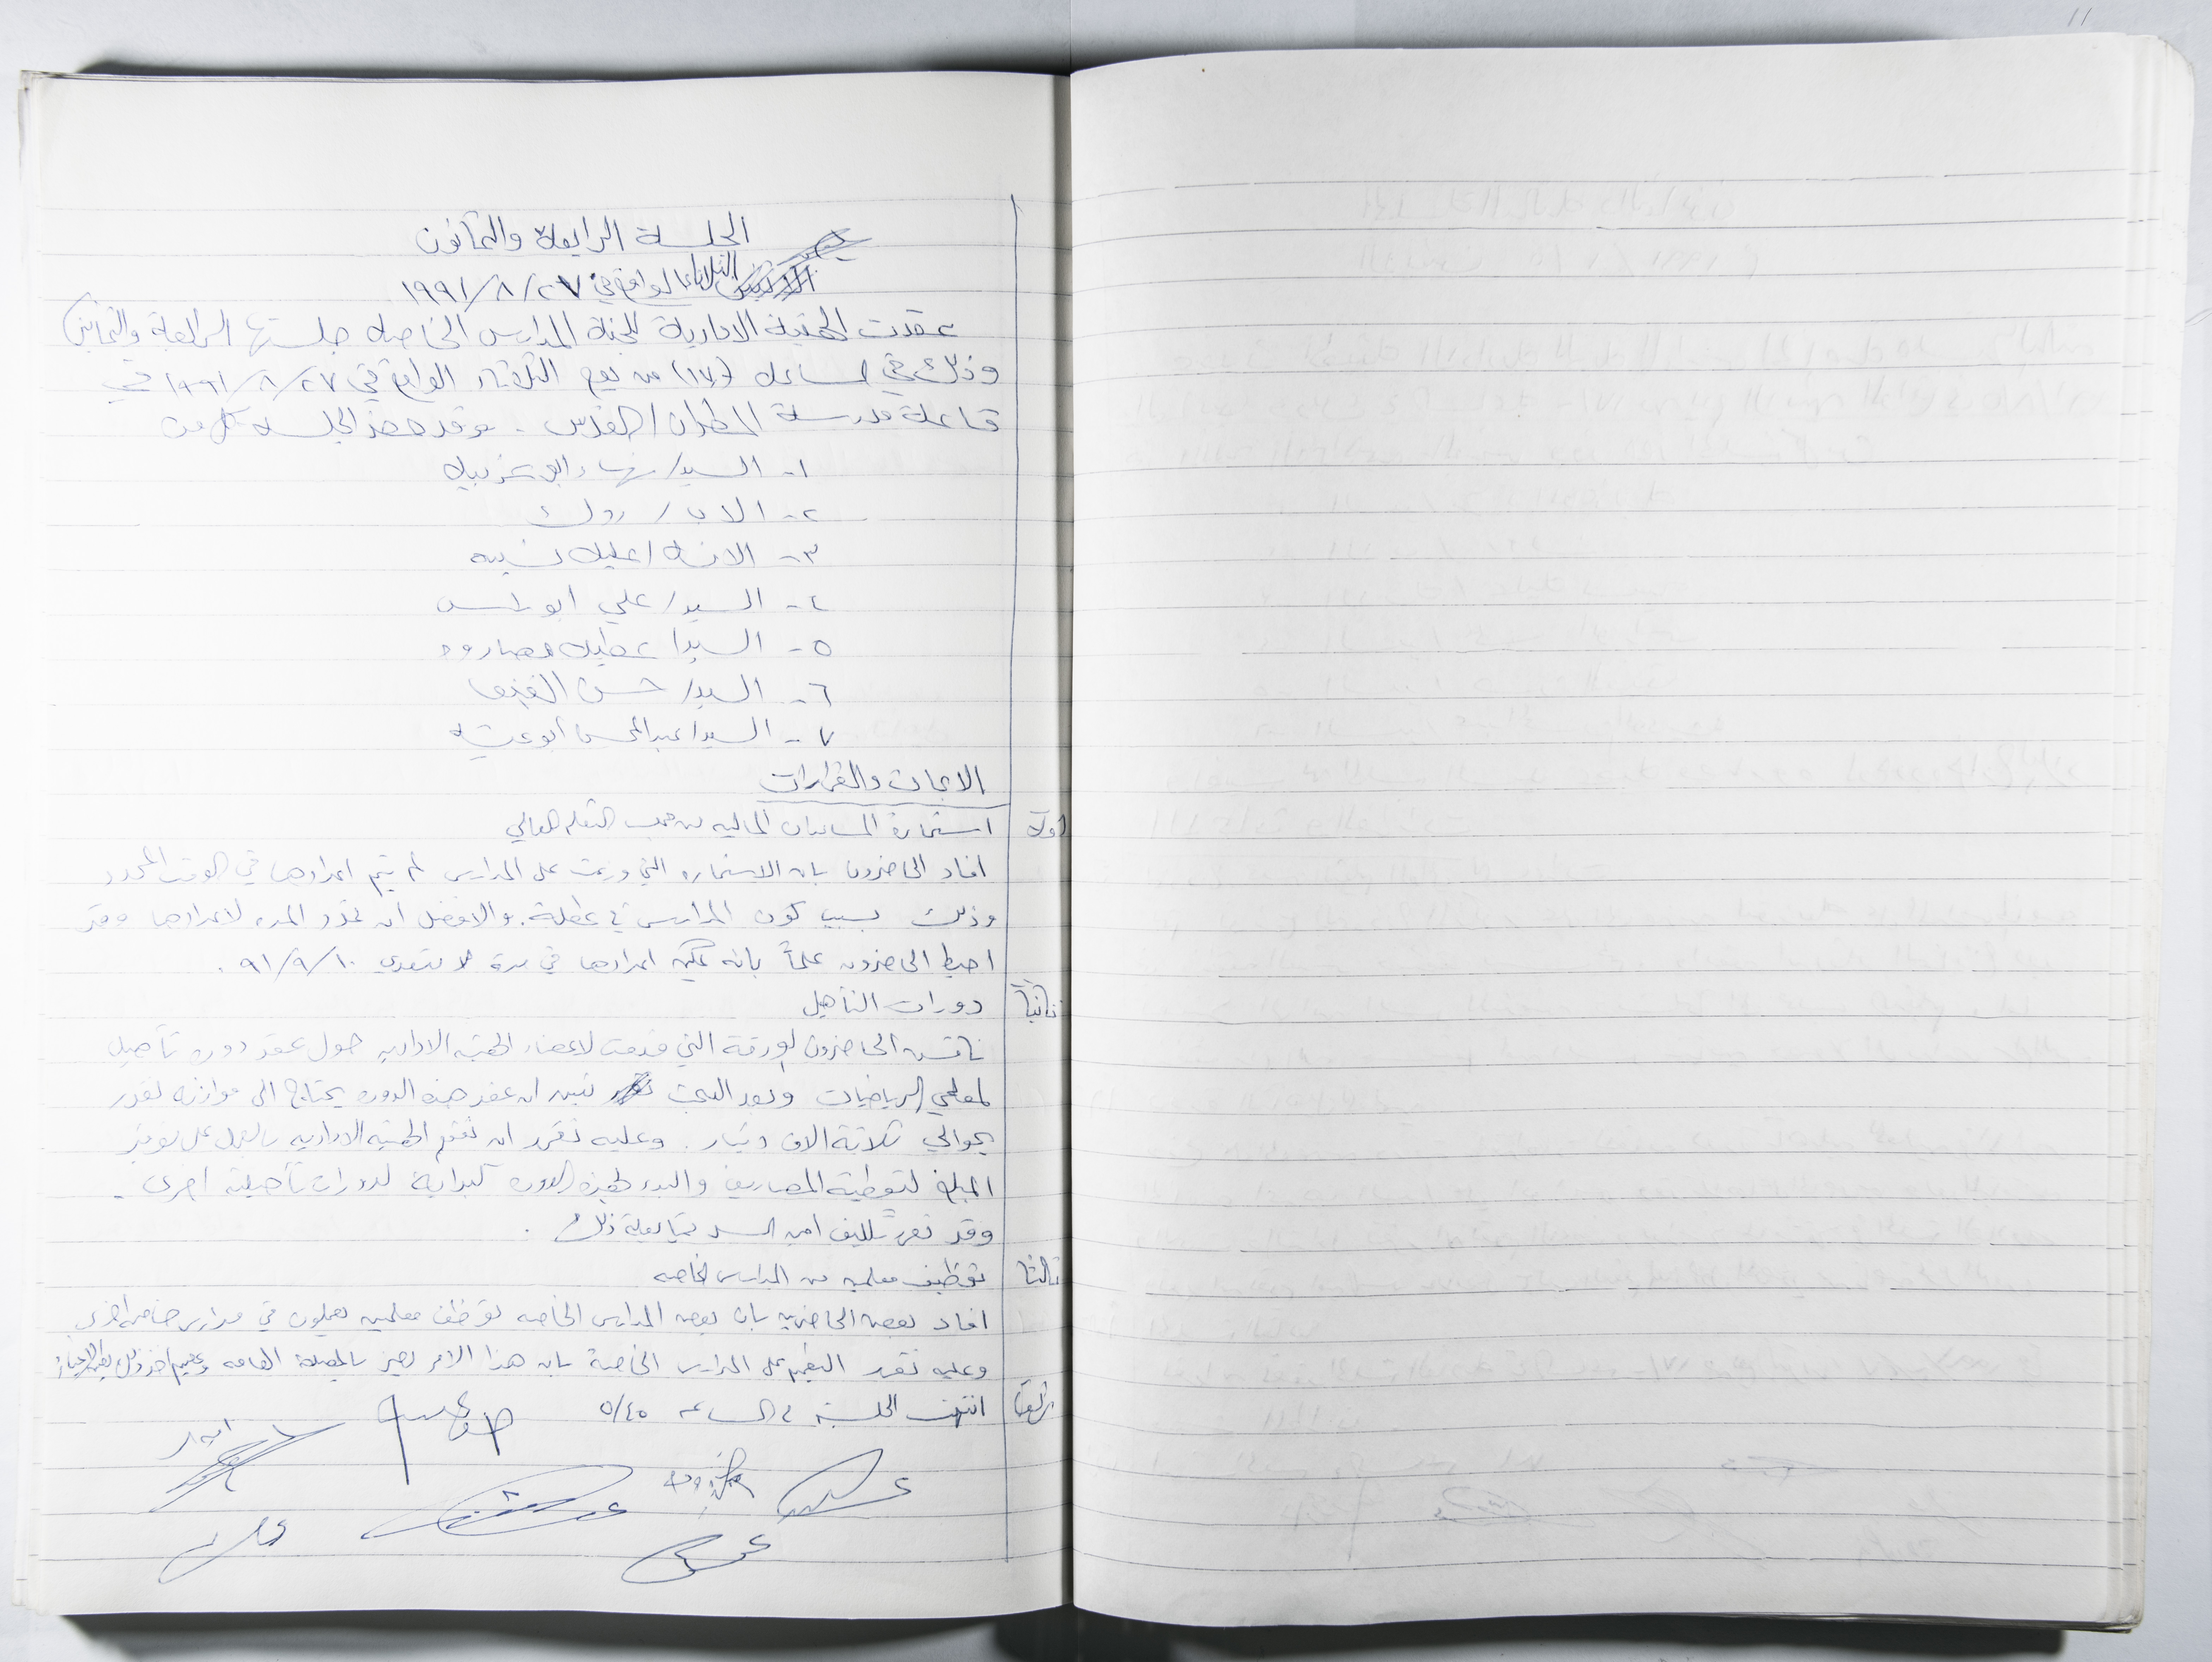 11
الجلسة الرابعة والثمانون
الثلاثاء الواقع في ٢٧/ ٨/ ١٩٩١
عقدت الهيئة الادارية للجنة المدارس الخاصة جلستها الرابعة والثمانين
وذلك في الساعة (١٧) من يوم الثلاثاء الواقع في ٢٧/ ٨/ ١٩٩١ في
قاعة مدرسة المطران / القدس . وقد حضر الجلسة كل من
١- السيد/ نهاد ابو غربيه
٢- الاب / رولف
٣- الانسه / عليه نسيبه
٤- السيد/ علي ابو راس
٥- السيد/ عطيه مصاروه
٦- السيد/ حسن القيق
٧- السيد/ عبد المحسن ابو عيشه
الابحاث والقرارات
اولاً استمارة المساعدات الماليه من مجلس التعليم العالي
افاد الحاضرون بان الاستماره التي وزعت على المدارس لم يتم اعدادها في الوقت المحدد
وذلك بسبب كون المدارس في عطلة. والافضل ان تمدد المده لاعدادها وقد
احيط الحاضرون علماً بانه يمكن اعدادها في مدة لا تتعدى ١٠/ ٩/ ٩١ .
ثانياً دورات التأهيل
ناقش الحاضرون الورقة التي قدمت لاعضاء الهيئة الاداريه حول عقد دوره تأهيل
لمعلمي الرياضيات وبعد البحث تبين ان عقد هذه الدوره يحتاج الى موازنه تقدر
بحوالي ثلاثة الاف دينار . وعليه تقرر ان تقوم الهيئة الاداريه بالعمل على توفير
المبلغ لتغطية المصاريف والبدء بهذه الدوره كبداية لدورات تأهيلية اخرى .
وقد تقرر تكليف امين السر بمتابعة ذلك .
ثالثا توظيف معلمين من المدارس الخاصه
افاد بعض الحاضرين بان بعض المدارس الخاصه توظف معلمين يعملون في مدارس خاصه اخرى
وعليه تقرر التعميم على المدارس الخاصة بان هذا الامر يضر بالمصلحة العامه وعليهم اخذ ذلك بعين الاعتبار
رابعاً انتهت الجلسة في الساعه ٥/٤٥